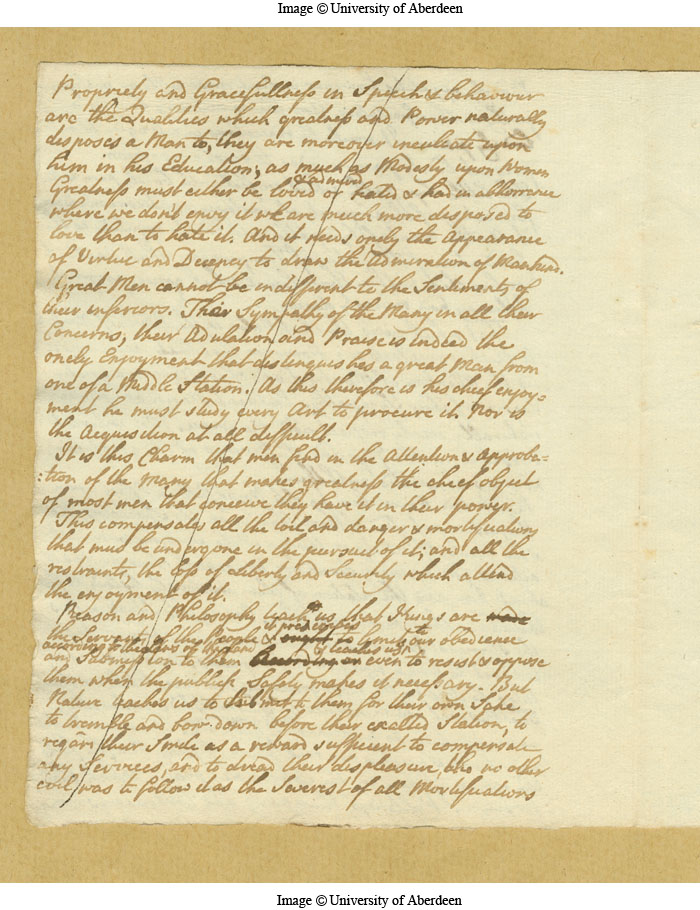 Image © University of Aberdeen
Propriety and Gracefullness in Speech & behaviour
are the Qualities which greatness and Power naturally
disposes a Man to, they are moreover inculcate upon
him in his Education, as much as Modesty upon Women
& admired
Greatness must either be loved or hated & had in abhorrence
where we don't envy it we are much more disposed to
love than to hate it. And it needs onely the Appearance
of Virtue and Decency to draw the admiration of Mankind.
Great Men cannot be indifferent to the Sentiments of
their inferiors. Their Sympathy of the Many in all their
Concerns, their Adulation and Praise is indeed the
onely Enjoyment that distinguishes a great Man from
one of a Middle Station. As this therefore is his chief enjoy=
ment he must study every Art to procure it. Nor is
the Acquisition at all difficult.
It is this Charm that men find in the Attention & Approba=
:tion of the many that makes greatness the chief object
of most men that conceive they have it in their power.
This compensates all the toil and danger & mortifications
that must be undergone in the pursuit of it; and all the
restraints, the loss of Liberty and Security which attend
the enjoyment of it.
Reason and Philosophy teach us that Kings are made
it prescribes
the Servants of the People & ought to limits our obedience
according to the laws of & teaches us
and Submission to them According or even to resist & oppose
them when the publick Safety makes it necessary. But
Nature teaches us to Submit to them for their own Sake
to tremble and bow down before their exalted Station, to
regard their Smile as a reward sufficient to compensate
any Services, and to dread their displeasure, tho no other
evil was to follow it as the Severest of all Mortifications
Image © University of Aberdeen